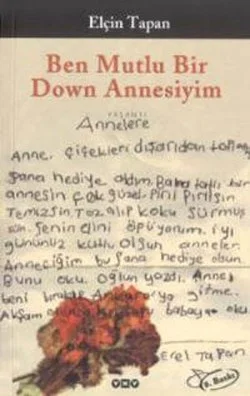 Elçin Tapan
Ben Mutlu Bir
Down Annesiyim
YAŞANTI
Annelere
Anne, çiçekleri dışarıdan
sana hediye aldım. Bana tatlı bir
annesin çok güzel. Pırıl Pırılsın
Temizsin. Toz alıp koku sürmüş
sün. Senin elini öpüyorum. iyi
gününüz kutlu olsun anneler
Anneciğim bu sana hediye olsun
Bunu oku. oğlun yazdı. Anne
beni bırakıp Ankara'ya gitme.
Akşam bunu babaya oku
Erel Tapan
YKY
8. Baskı